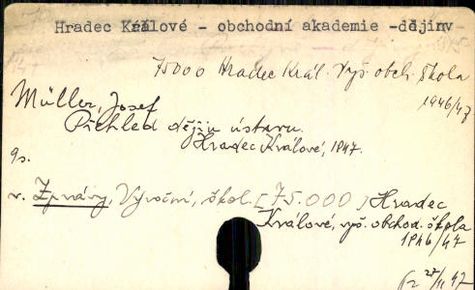 Hradec Králové - obchodní akademie - dějiny
75000 Hradec Král. Vyš. obch. škola
1946/47
Müller, Josef
Přehled dějin ústavu.
Hradec Králové, 1947.
9s.
v. Zprávy, Výroční, škol. [75.000] Hradec
Králové, vyš. obchod. škola
1946/47
27/11 47